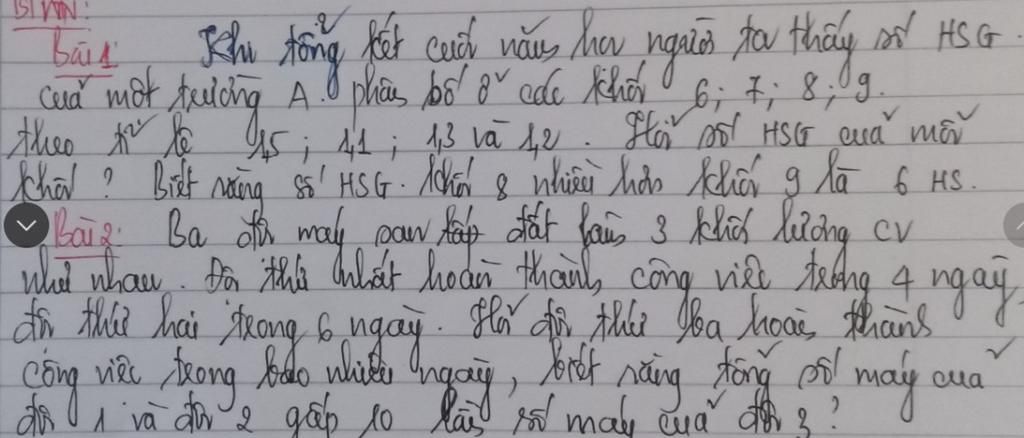 BTVN:
Bài 1: Khi tổng kết cuối năm học người ta thấy số HSG
của một trường A. phân bố ở các khối 6; 7; 8; 9.
theo tỉ lệ 1,5; 1,1; 1,3 và 1,2. Hỏi số HSG của mỗi
khối? Biết rằng số HSG. khối 8 nhiều hơn khối 9 là 6 HS.
Bài 2: Ba đội máy san lấp đất làm 3 khối lượng CV
như nhau. Đội thứ nhất hoàn thành công việc trong 4 ngày,
đội thứ hai trong 6 ngày. Hỏi đội thứ ba hoàn thành
công việc trong bao nhiêu ngày, biết rằng tổng số máy của
đội 1 và đội 2 gấp 10 lần số máy của đội 3?